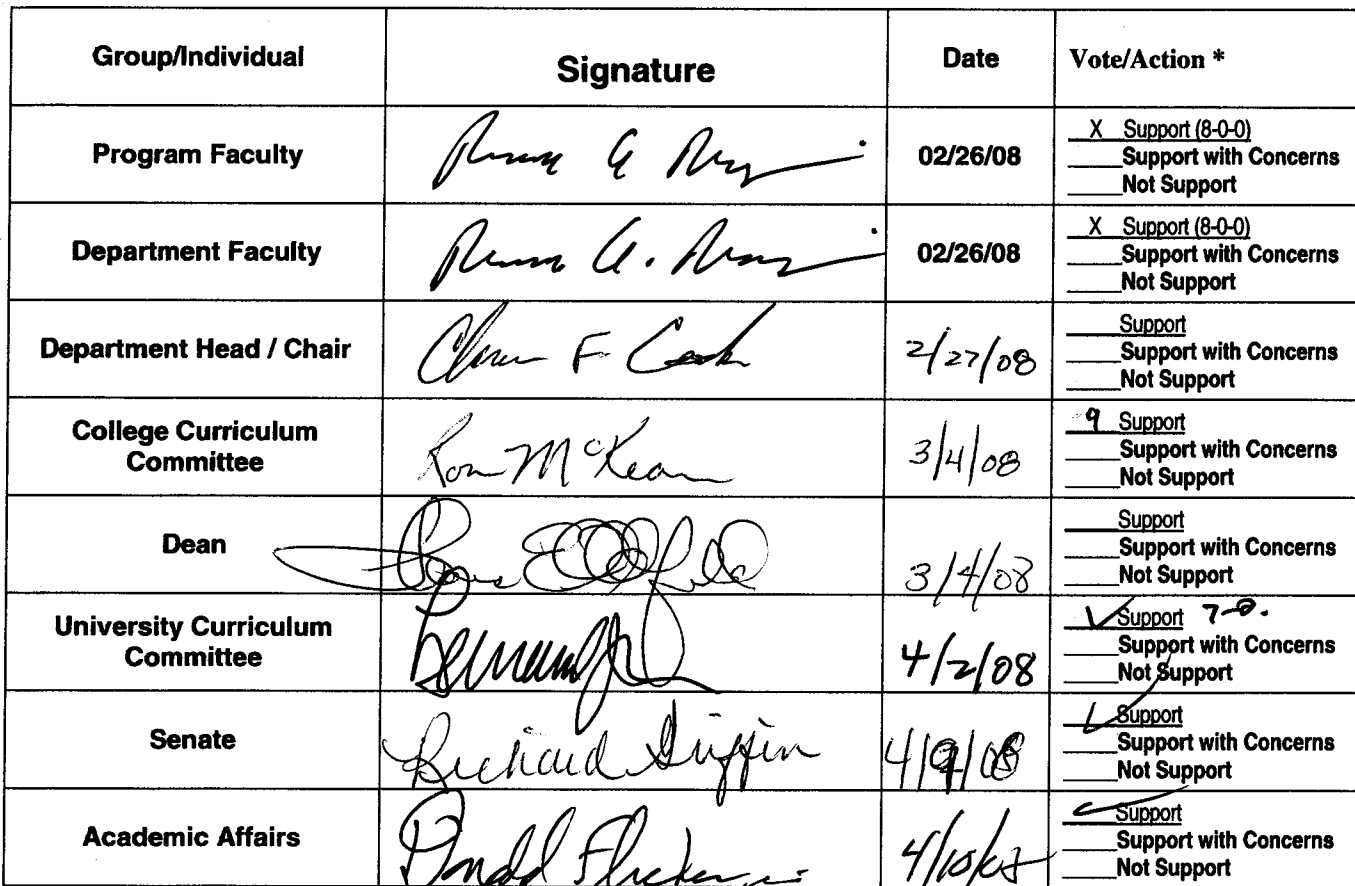 Group/Individual Signature Date Vote/Action *
Program Faculty 02/26/08 X Support (8-0-0)
Support with Concerns
Not Support
Department Faculty 02/26/08 X Support (8-0-0)
Support with Concerns
Not Support
Department Head / Chair F 2/27/08 Support
Support with Concerns
Not Support
College Curriculum
Committee Ron McKean 3/4/08 9 Support
Support with Concerns
Not Support
Dean 3/4/08 Support
Support with Concerns
Not Support
University Curriculum
Committee 4/2/08 ✓ Support 7-0.
Support with Concerns
Not Support
Senate Richard Griffin 4/9/08 ✓ Support
Support with Concerns
Not Support
Academic Affairs Donald 4/10/08 ✓ Support
Support with Concerns
Not Support